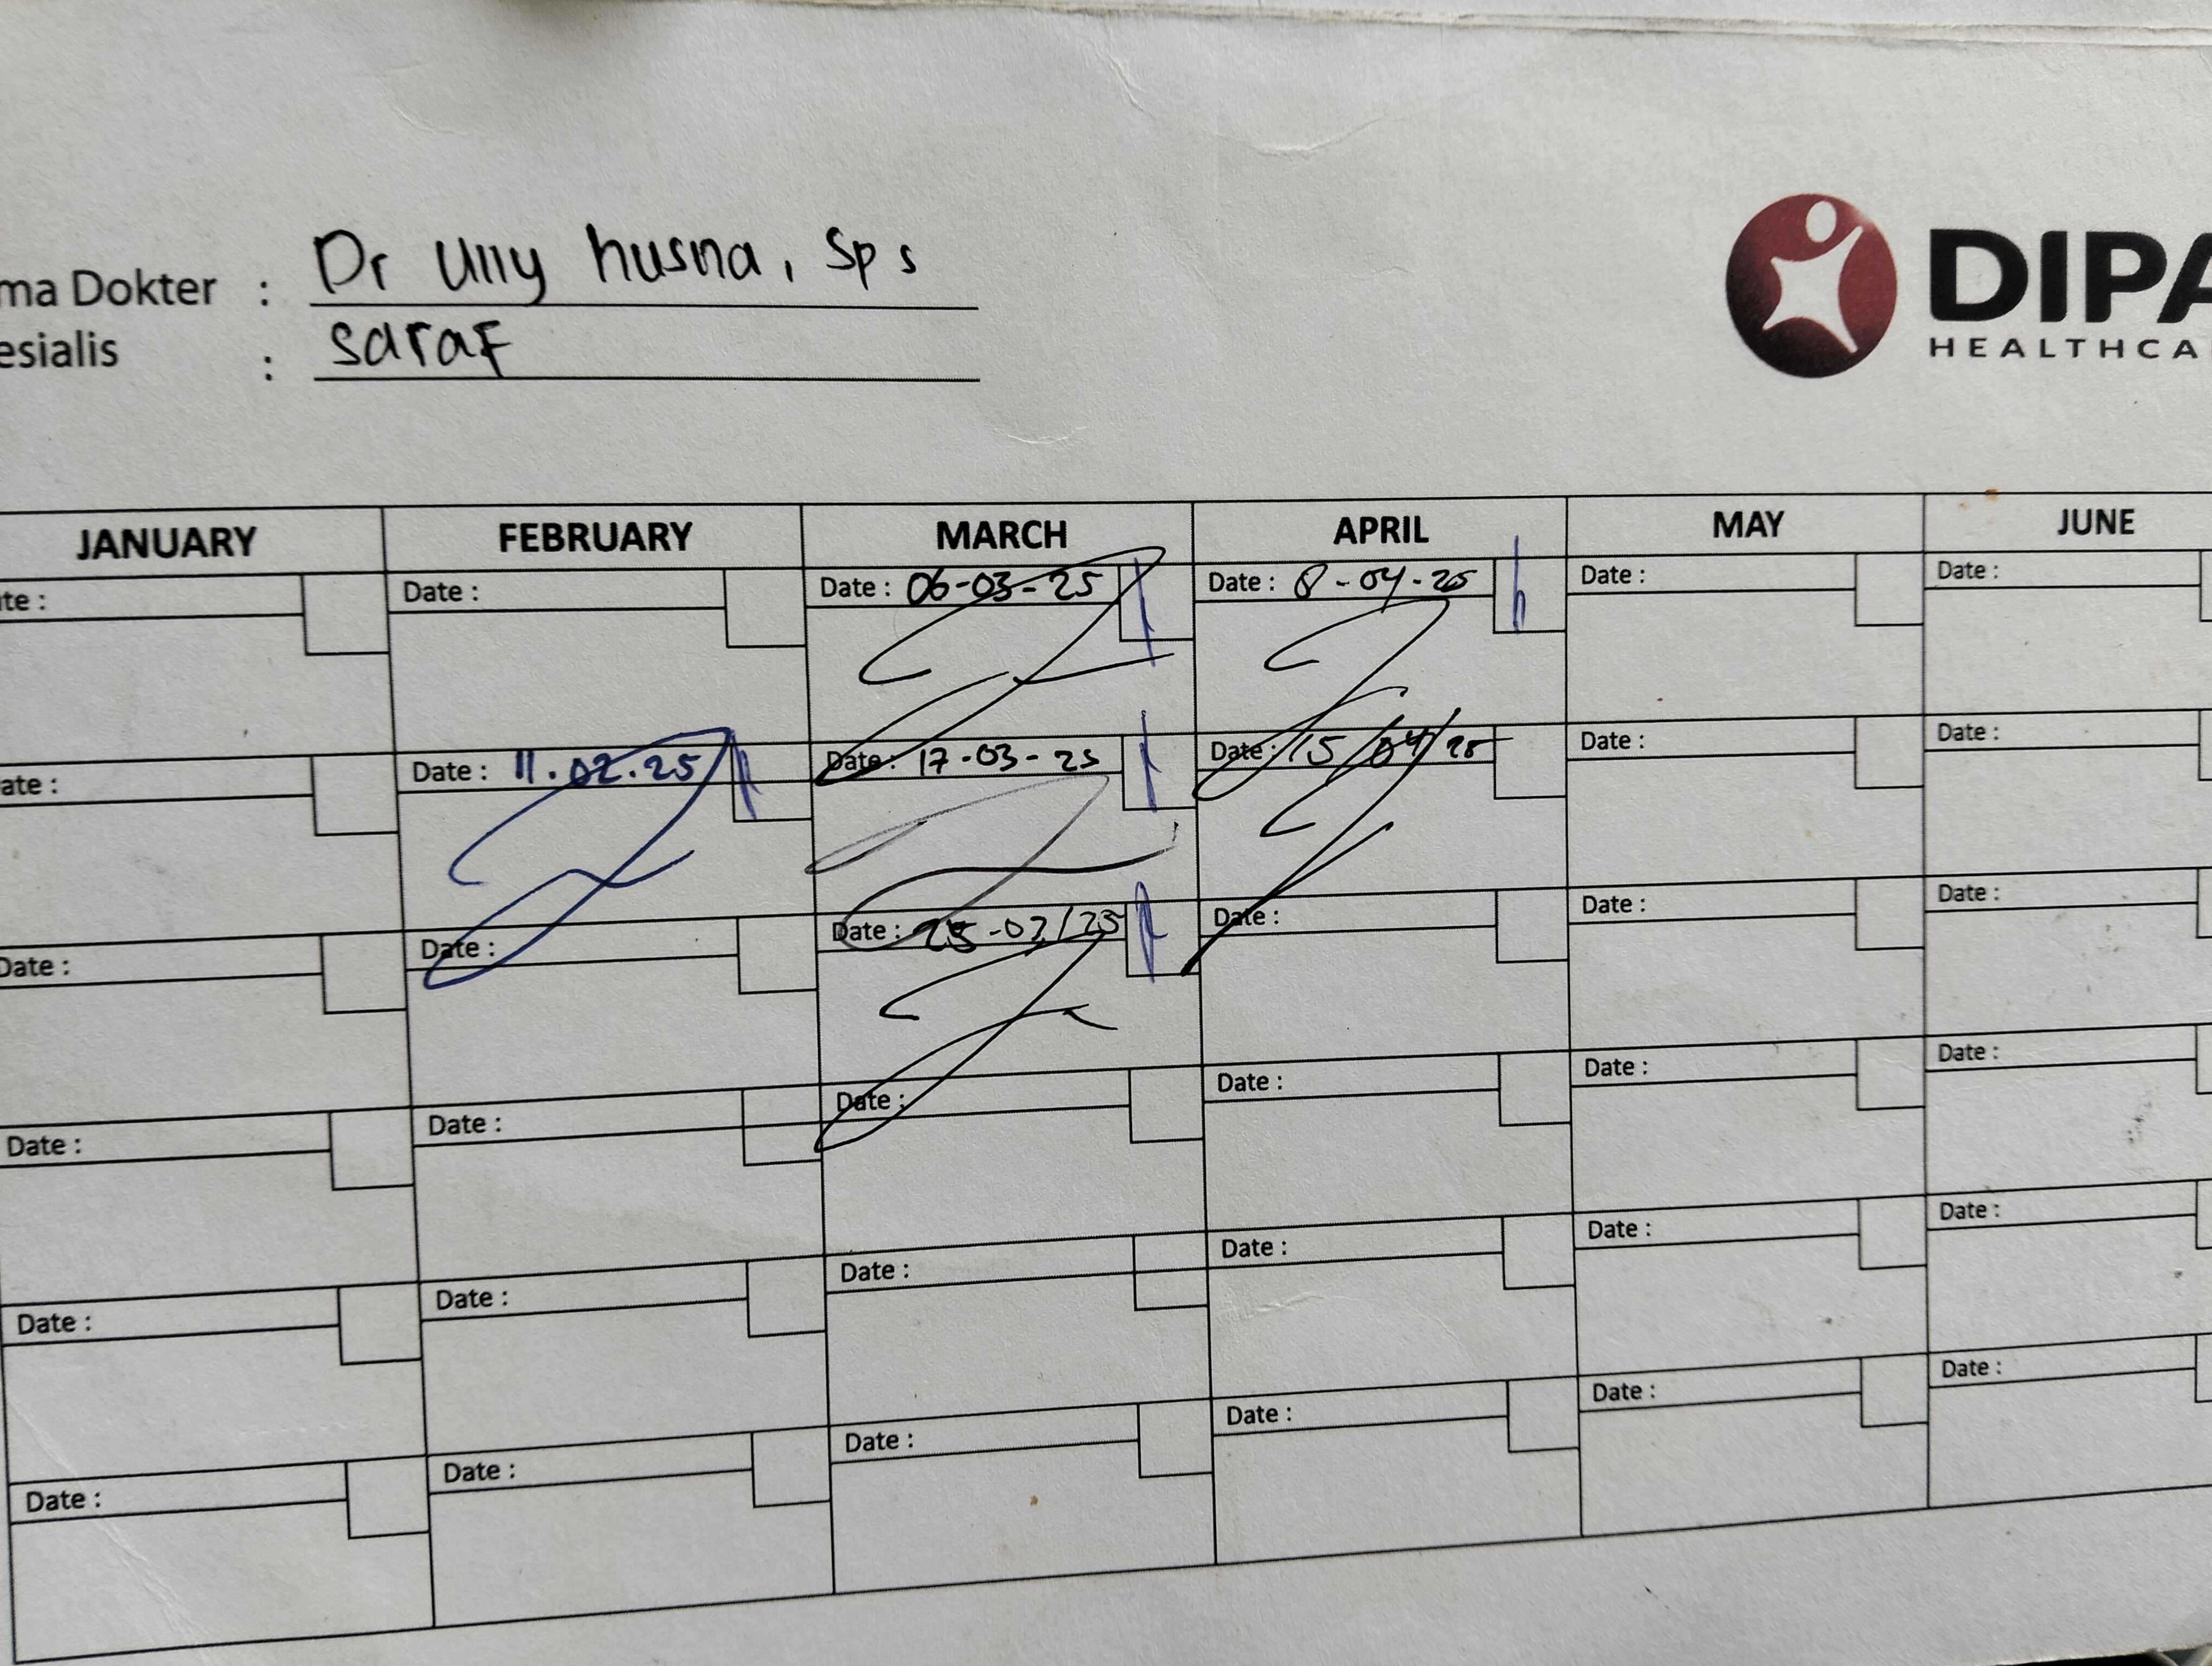 ma Dokter : Dr Ully husna, Sp s
esialis : saraf
DIPA
HEALTHCA
JANUARY FEBRUARY MARCH APRIL MAY JUNE
te : Date : Date : 06-03-25 Date : 8-04-25 Date : Date :
ate : Date : 11.02.25 Date : 17-03-25 Date : 15/04/25 Date : Date :
Date : Date : Date : 25-03/25 Date : Date : Date :
Date : Date : Date : Date : Date : Date :
Date : Date : Date : Date : Date : Date :
Date : Date : Date : Date : Date : Date :